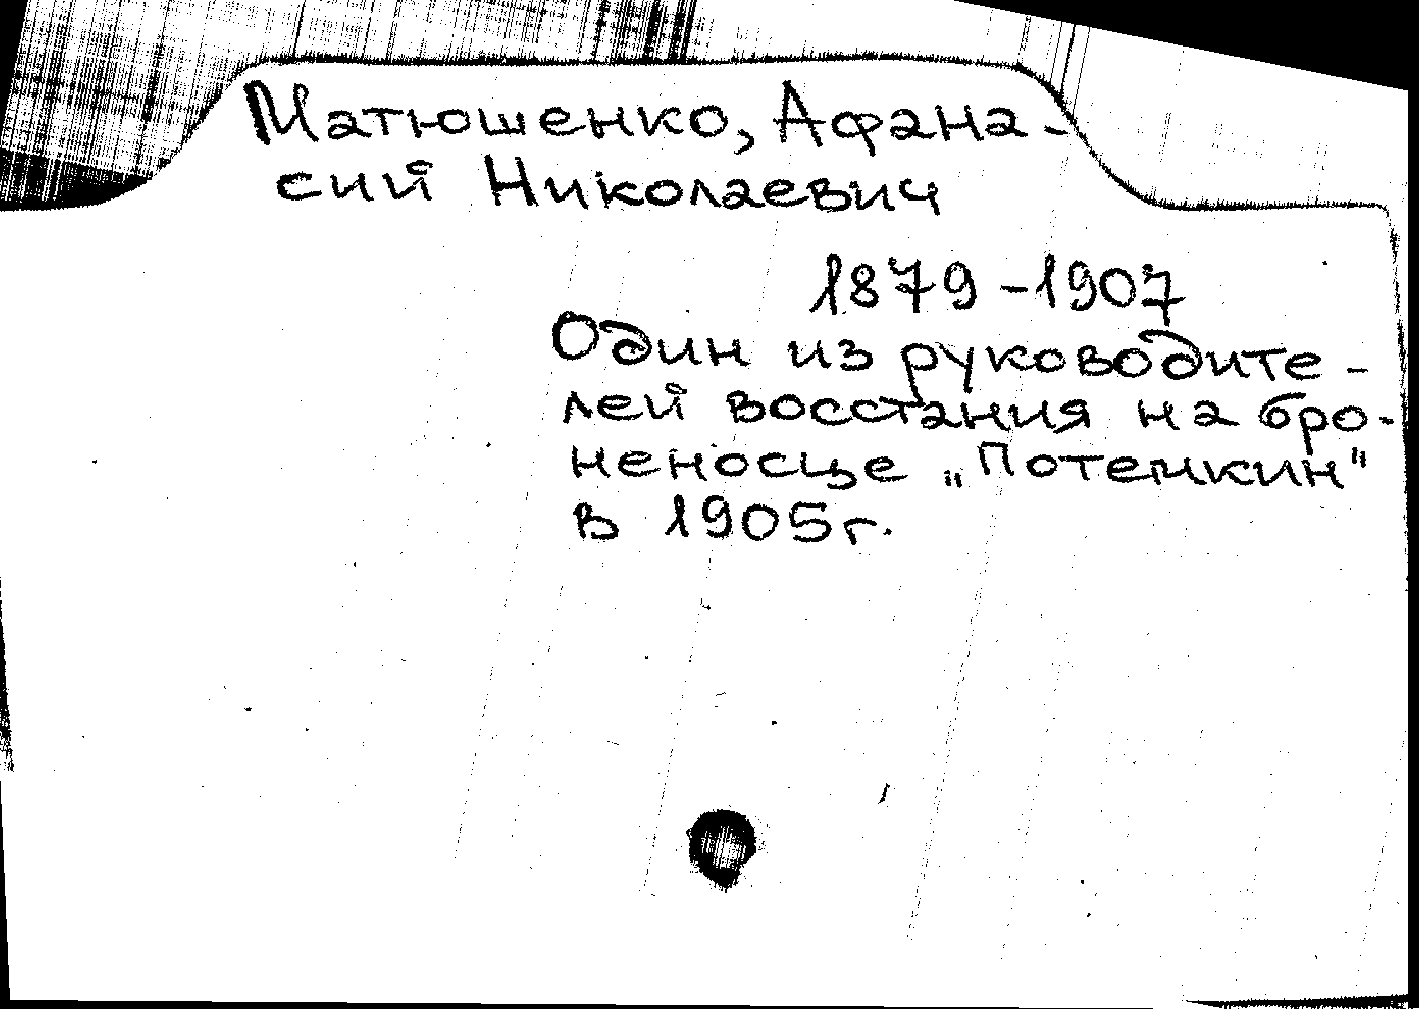 Матюшенко, Афана-
сий Николаевич
1879-1907
Один из руководите-
лей восстания на бро-
неносце „Потемкин"
в 1905г.